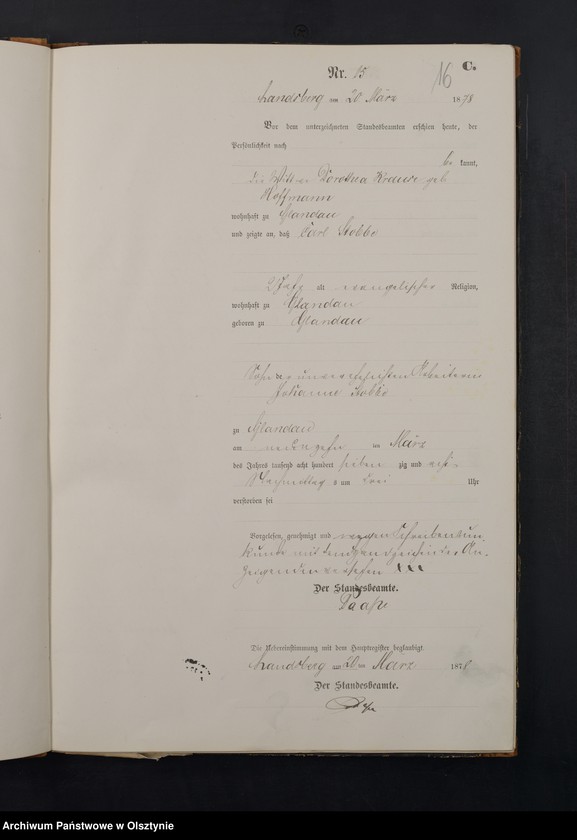 Nr. 15
16
C.
Landsberg am 20 März 1878
Vor dem unterzeichneten Standesbeamten erschien heute, der
Persönlichkeit nach
be kannt,
die Dorothea Krause geb
Hoffmann
wohnhaft zu Glandau
und zeigte an, daß Carl Stobbe
2 Jahr alt evangelischer Religion,
wohnhaft zu Glandau
geboren zu Glandau
Sohn der unverehelichten Arbeiterin
Johanne Stobbe
zu Glandau
am neunzehn ten März
des Jahres tausend acht hundert sieben zig und acht
Nachmittag s um drei Uhr
verstorben sei
Vorgelesen, genehmigt und wegen Schreibensun-
kunde mit Handzeichen der An-
zeigenden versehen
Der Standesbeamte.
Die Uebereinstimmung mit dem Hauptregister beglaubigt.
Landsberg am 20 ten März 1878
Der Standesbeamte.
Archiwum Państwowe w Olsztynie